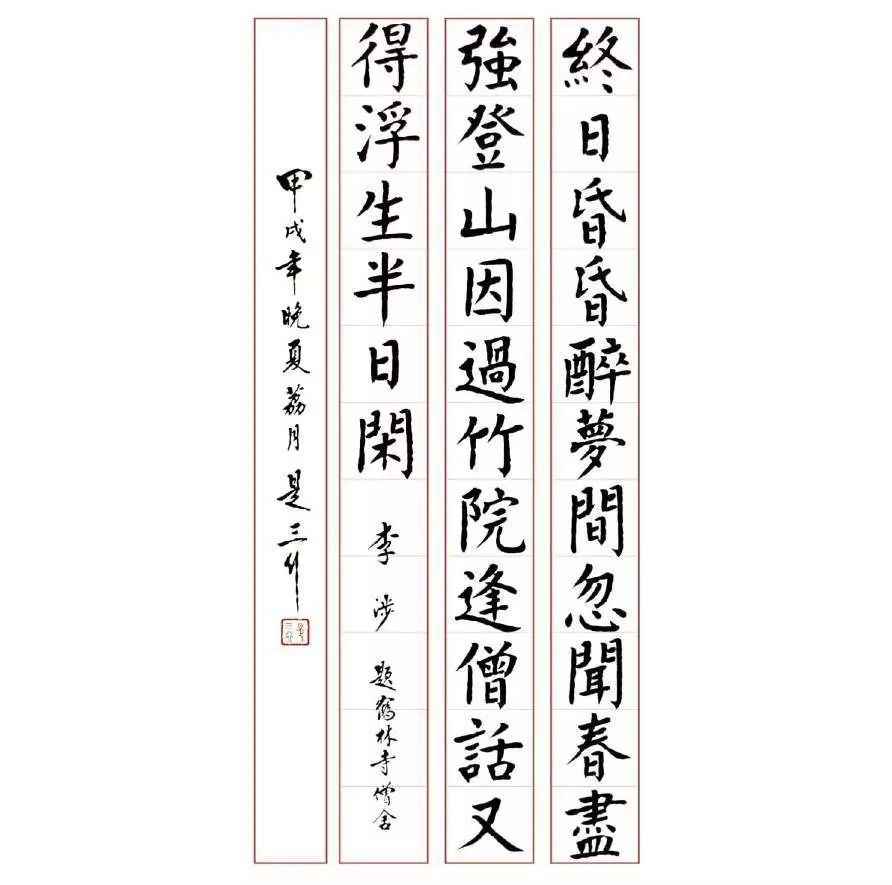 終日昏昏醉夢間忽聞春盡
強登山因過竹院逢僧話又
得浮生半日閑 李涉 題鶴林寺僧舍
甲戌年晚夏荔月是三